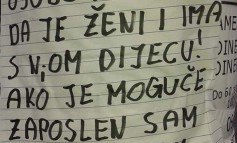 DA JE ŽENI I IMA
S NJOM DIJECU!
AKO JE MOGUČE
ZAPOSLEN SAM